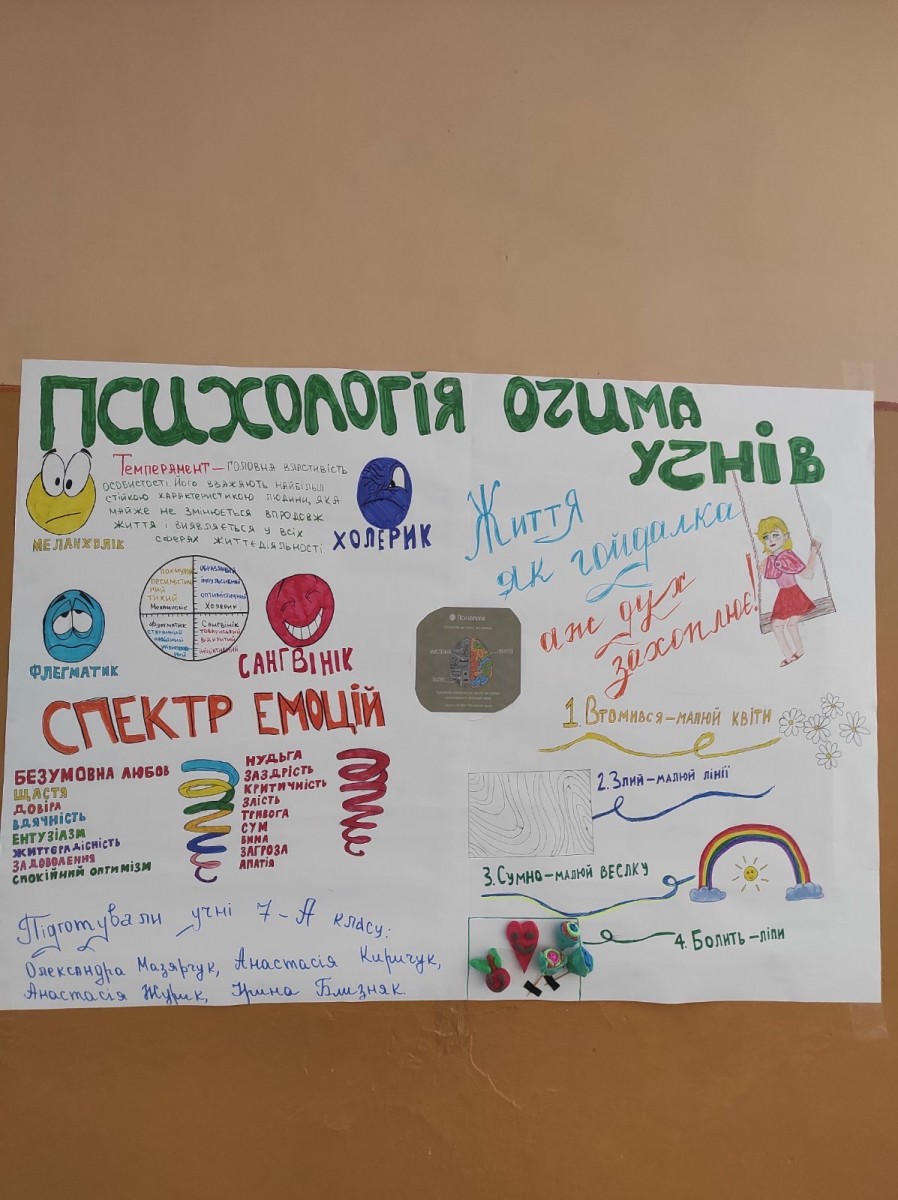 ПСИХОЛОГІЯ ОЧИМА
УЧНІВ
Темперамент – головна властивість
особистості. Його вважають найбільш
стійкою характеристикою людини, яка
майже не змінюється впродовж
життя і виявляється у всіх
сферах життєдіяльності
МЕЛАНХОЛІК
ХОЛЕРИК
Меланхолік
Холерик
Флегматик
Сангвінік
ФЛЕГМАТИК
САНГВІНІК
СПЕКТР ЕМОЦІЙ
БЕЗУМОВНА ЛЮБОВ
ЩАСТЯ
ДОВІРА
ВДЯЧНІСТЬ
ЕНТУЗІАЗМ
ЖИТТЄРАДІСНІСТЬ
ЗАДОВОЛЕННЯ
СПОКІЙНИЙ ОПТИМІЗМ
НУДЬГА
ЗАЗДРІСТЬ
КРИТИЧНІСТЬ
ЗЛІСТЬ
ТРИВОГА
СУМ
ВИНА
ЗАГРОЗА
АПАТІЯ
Підготували учні 7-А класу:
Олександра Мазярчук, Анастасія Киричук,
Анастасія Журик, Ірина Близняк.
Психологія
Життя
як гойдалка
аж дух
захоплює!
1. Втомився – малюй квіти
2. Злий – малюй лінії
3. Сумно – малюй веселку
4. Болить – ліпи